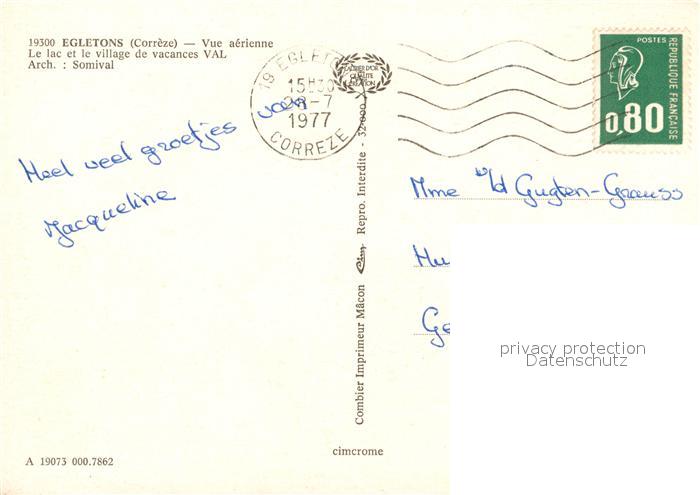 19300 EGLETONS (Corrèze) — Vue aérienne
Le lac et le village de vacances VAL
Arch. : Somival
19 EGLETONS
15H30
28-7
1977
CORREZE
POSTES
REPUBLIQUE FRANÇAISE
0,80
Heel veel groetjes van
Jacqueline
Mme v/d Gugten-Grauss
Hu
Ge
Combier Imprimeur Mâcon Cim Repro. Interdite - 32.000
privacy protection
Datenschutz
cimcrome
A 19073 000.7862